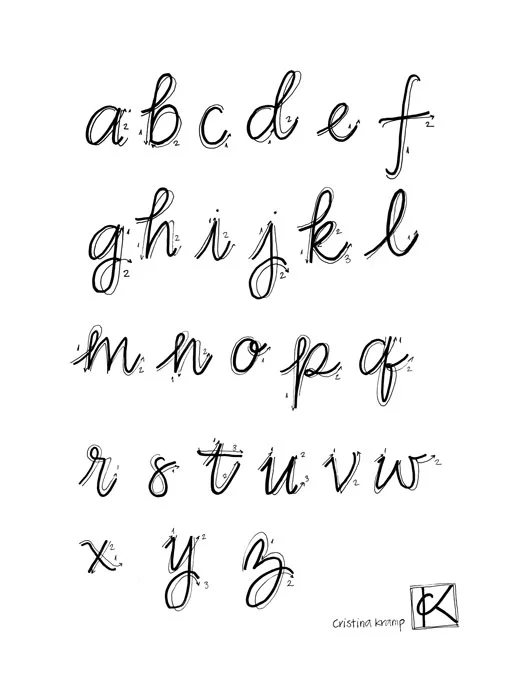 a b c d e f
g h i j k l
m n o p q
r s t u v w
x y z
Cristina Kramp
CK